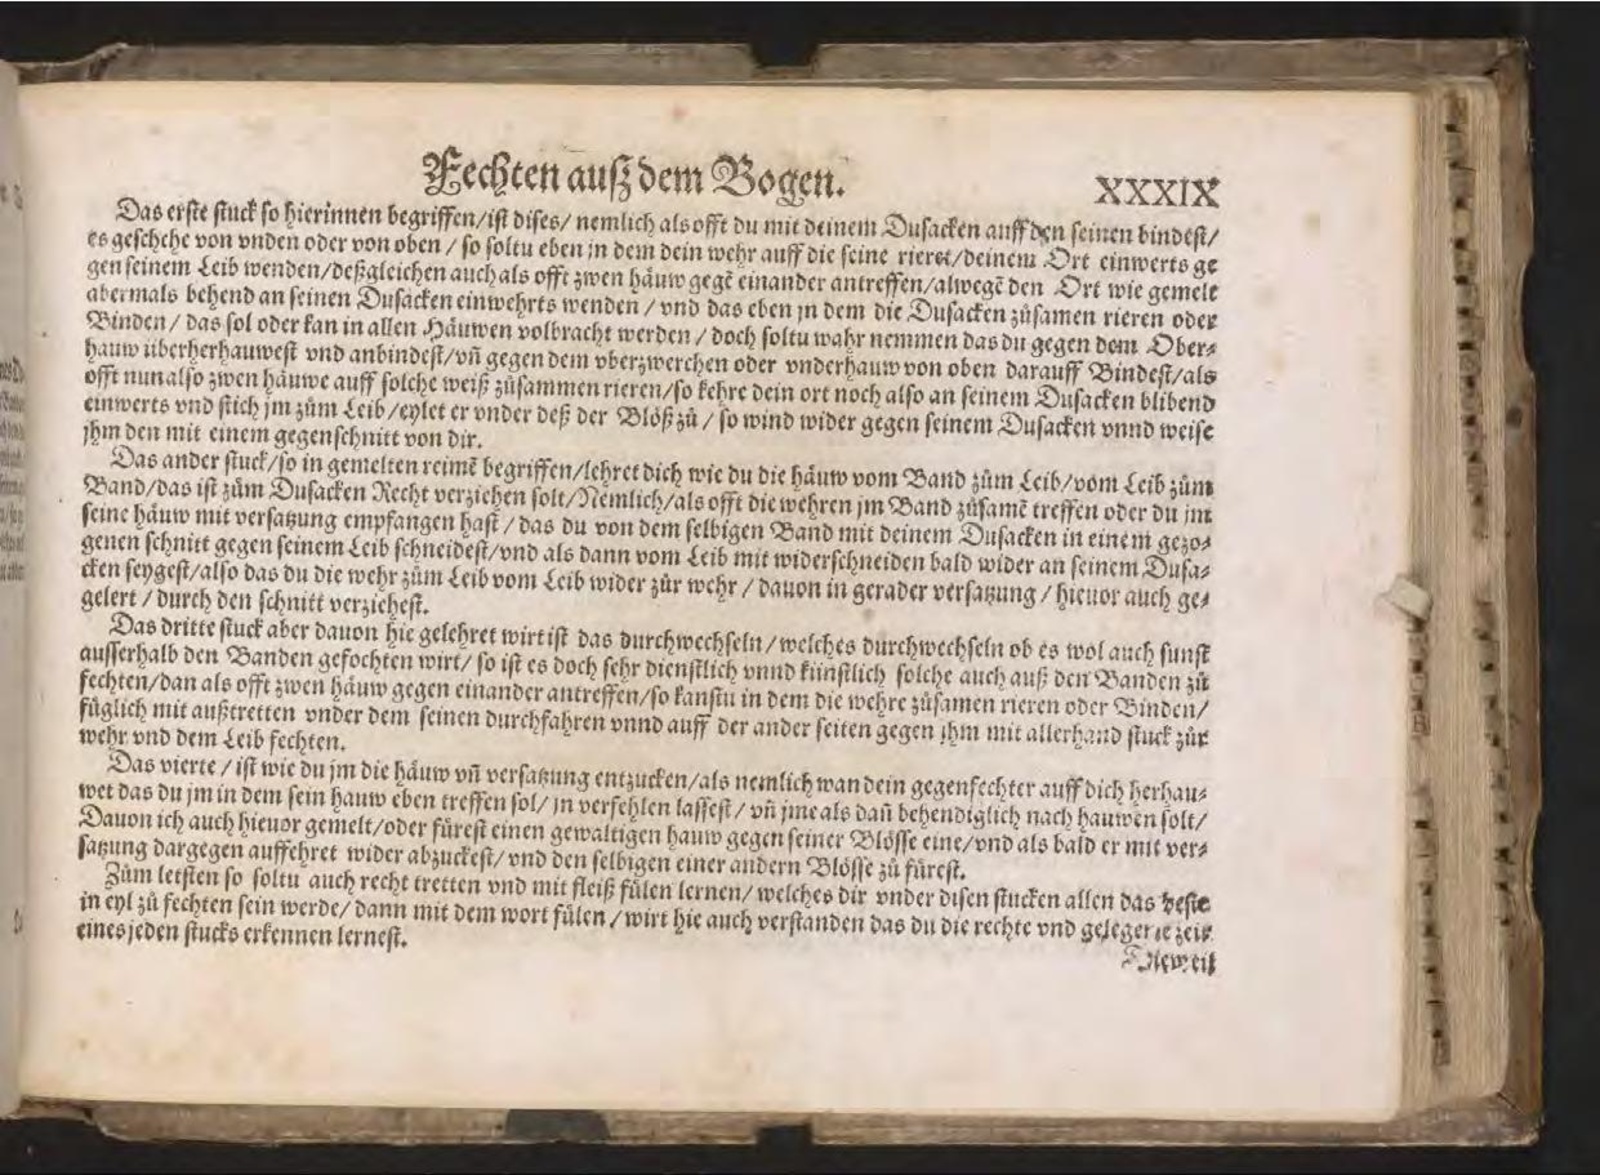 Fechten auß dem Bogen.
XXXIX
Das erste stuck so hierinnen begriffen/ist dises/ nemlich als offt du mit deinem Dusacken auff den seinen bindest/
es geschehe von vnden oder von oben / so soltu eben jn dem dein wehr auff die seine rieret/deinem Ort einwerts ge
gen seinem Leib wenden/deßgleichen auch als offt zwen häuw gegē einander antreffen/alwegē den Ort wie gemelt
abermals behend an seinen Dusacken einwehrts wenden / vnd das eben jn dem die Dusacken zůsamen rieren oder
Binden / das sol oder kan in allen Häuwen volbracht werden / doch soltu wahr nemmen das du gegen dem Ober-
hauw überherhauwest vnd anbindest/vñ gegen dem vberzwerchen oder vnderhauw von oben darauff Bindest/als
offt nun also zwen häuwe auff solche weiß zůsammen rieren/so kehre dein ort noch also an seinem Dusacken blibend
einwerts vnd stich jm zům Leib/eylet er vnder deß der Blöß zů / so wind wider gegen seinem Dusacken vnnd weise
jhm den mit einem gegenschnitt von dir.
Das ander stuck/so in gemelten reimē begriffen/lehret dich wie du die häuw vom Band zům Leib/vom Leib zům
Band/das ist zům Dusacken Recht verziehen solt/Nemlich/als offt die wehren jm Band zůsamē treffen oder du jm
seine häuw mit versatzung empfangen hast / das du von dem selbigen Band mit deinem Dusacken in einem gezo-
genen schnitt gegen seinem Leib schneidest/vnd als dann vom Leib mit widerschneiden bald wider an seinem Dusa-
cken seygest/also das du die wehr zům Leib vom Leib wider zůr wehr / dauon in gerader versatzung / hieuor auch ge-
gelert / durch den schnitt verziehest.
Das dritte stuck aber dauon hie gelehret wirt ist das durchwechseln/ welches durchwechseln ob es wol auch sunst
ausserhalb den Banden gefochten wirt/ so ist es doch sehr dienstlich vnnd künstlich solche auch auß den Banden zů
fechten/dan als offt zwen häuw gegen einander antreffen/so kanstu in dem die wehre zůsamen rieren oder Binden/
füglich mit außtretten vnder dem seinen durchfahren vnnd auff der ander seiten gegen jhm mit allerhand stuck zůr
wehr vnd dem Leib fechten.
Das vierte / ist wie du jm die häuw vñ versatzung entzucken/als nemlich wan dein gegenfechter auff dich herhau-
wet das du jm in dem sein hauw eben treffen sol/ jn verfehlen lassest / vñ jme als dañ behendiglich nach hauwen solt/
Dauon ich auch hieuor gemelt/oder fürest einen gewaltigen hauw gegen seiner Blösse eine/vnd als bald er mit ver-
satzung dargegen auffehret wider abzuckest/ vnd den selbigen einer andern Blösse zů fürest.
Zům letsten so soltu auch recht tretten vnd mit fleiß fůlen lernen/ welches dir vnder disen stucken allen das beste
in eyl zů fechten sein werde/ dann mit dem wort fůlen / wirt hie auch verstanden das du die rechte vnd gelegene zeit
eines jeden stucks erkennen lernest.
Dieweil